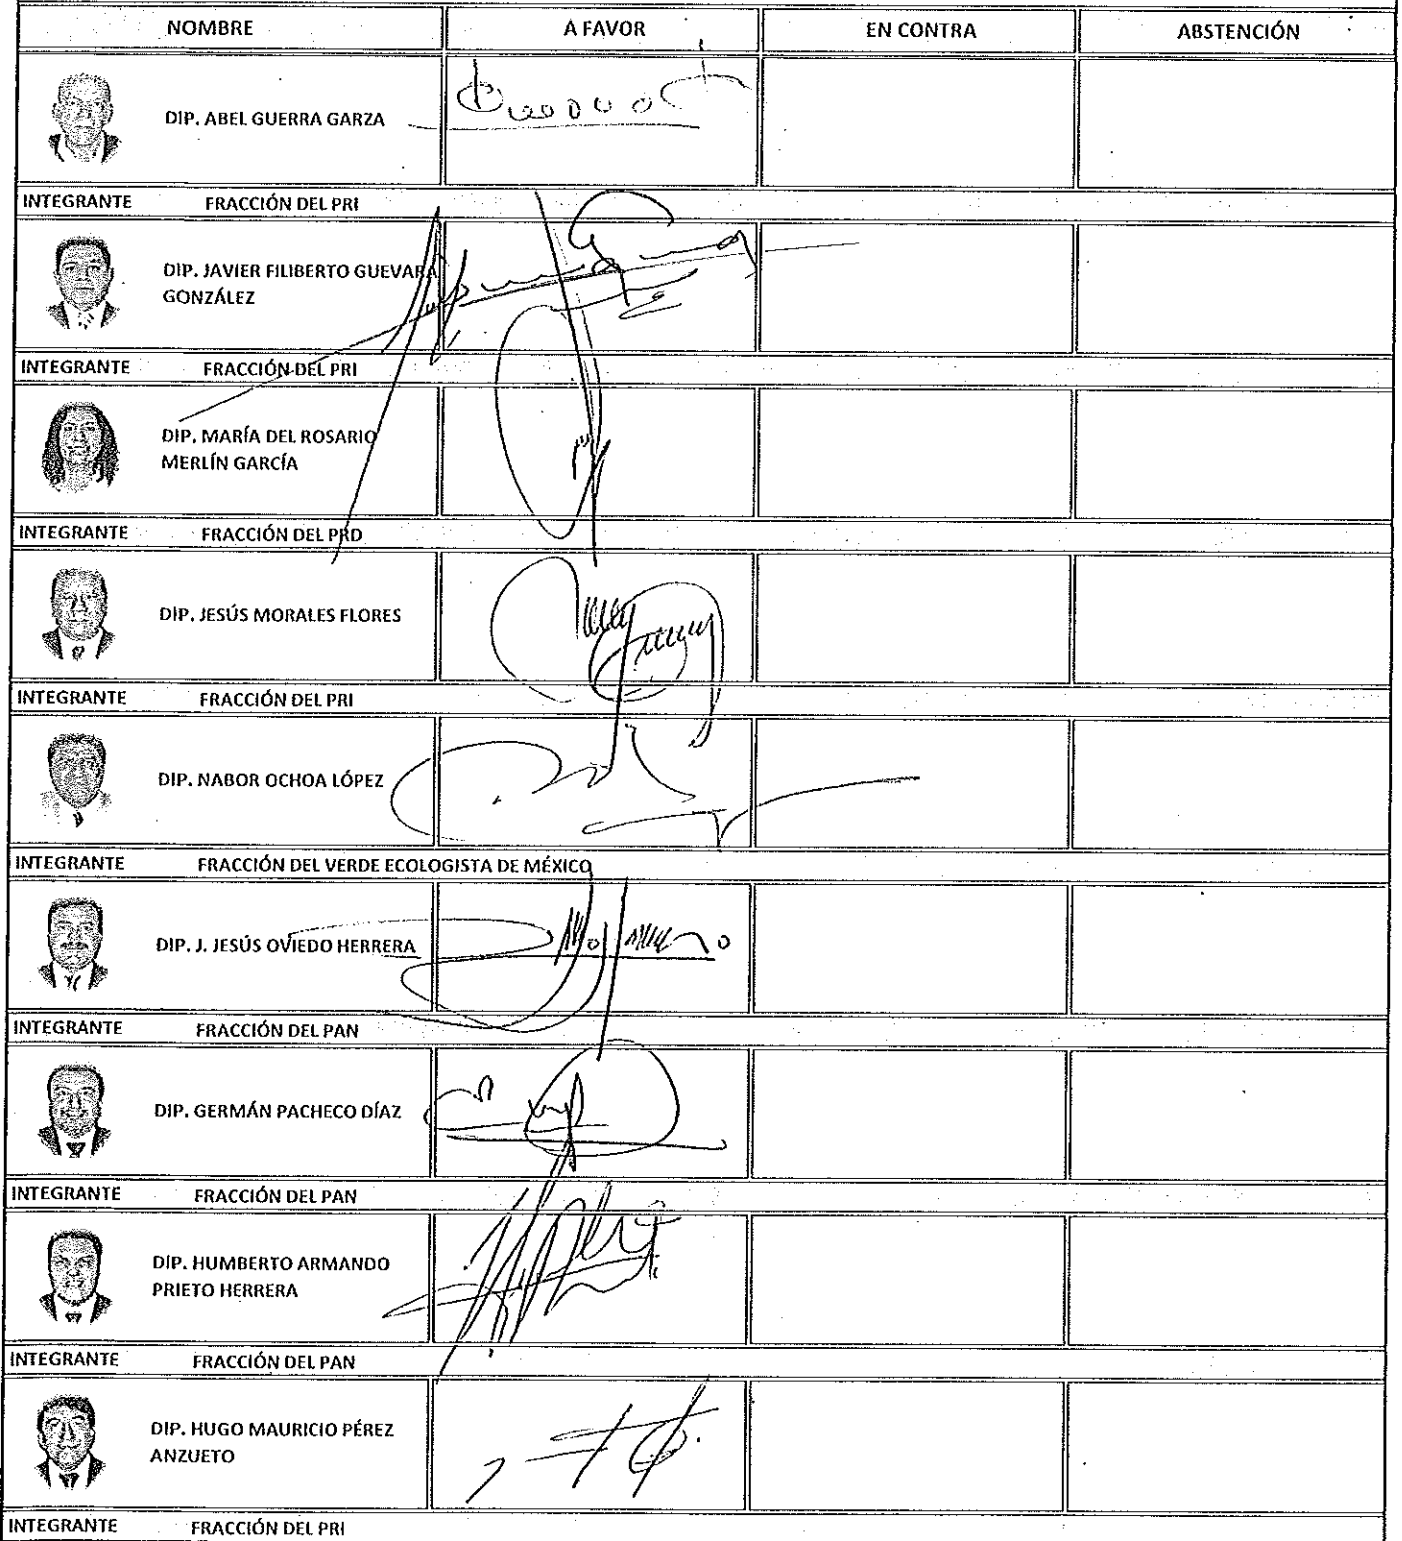 NOMBRE A FAVOR EN CONTRA ABSTENCIÓN
DIP. ABEL GUERRA GARZA
INTEGRANTE FRACCIÓN DEL PRI
DIP. JAVIER FILIBERTO GUEVARA
GONZÁLEZ
INTEGRANTE FRACCIÓN DEL PRI
DIP. MARÍA DEL ROSARIO
MERLÍN GARCÍA
INTEGRANTE FRACCIÓN DEL PRD
DIP. JESÚS MORALES FLORES
INTEGRANTE FRACCIÓN DEL PRI
DIP. NABOR OCHOA LÓPEZ
INTEGRANTE FRACCIÓN DEL VERDE ECOLOGISTA DE MÉXICO
DIP. J. JESÚS OVIEDO HERRERA
INTEGRANTE FRACCIÓN DEL PAN
DIP. GERMÁN PACHECO DÍAZ
INTEGRANTE FRACCIÓN DEL PAN
DIP. HUMBERTO ARMANDO
PRIETO HERRERA
INTEGRANTE FRACCIÓN DEL PAN
DIP. HUGO MAURICIO PÉREZ
ANZUETO
INTEGRANTE FRACCIÓN DEL PRI